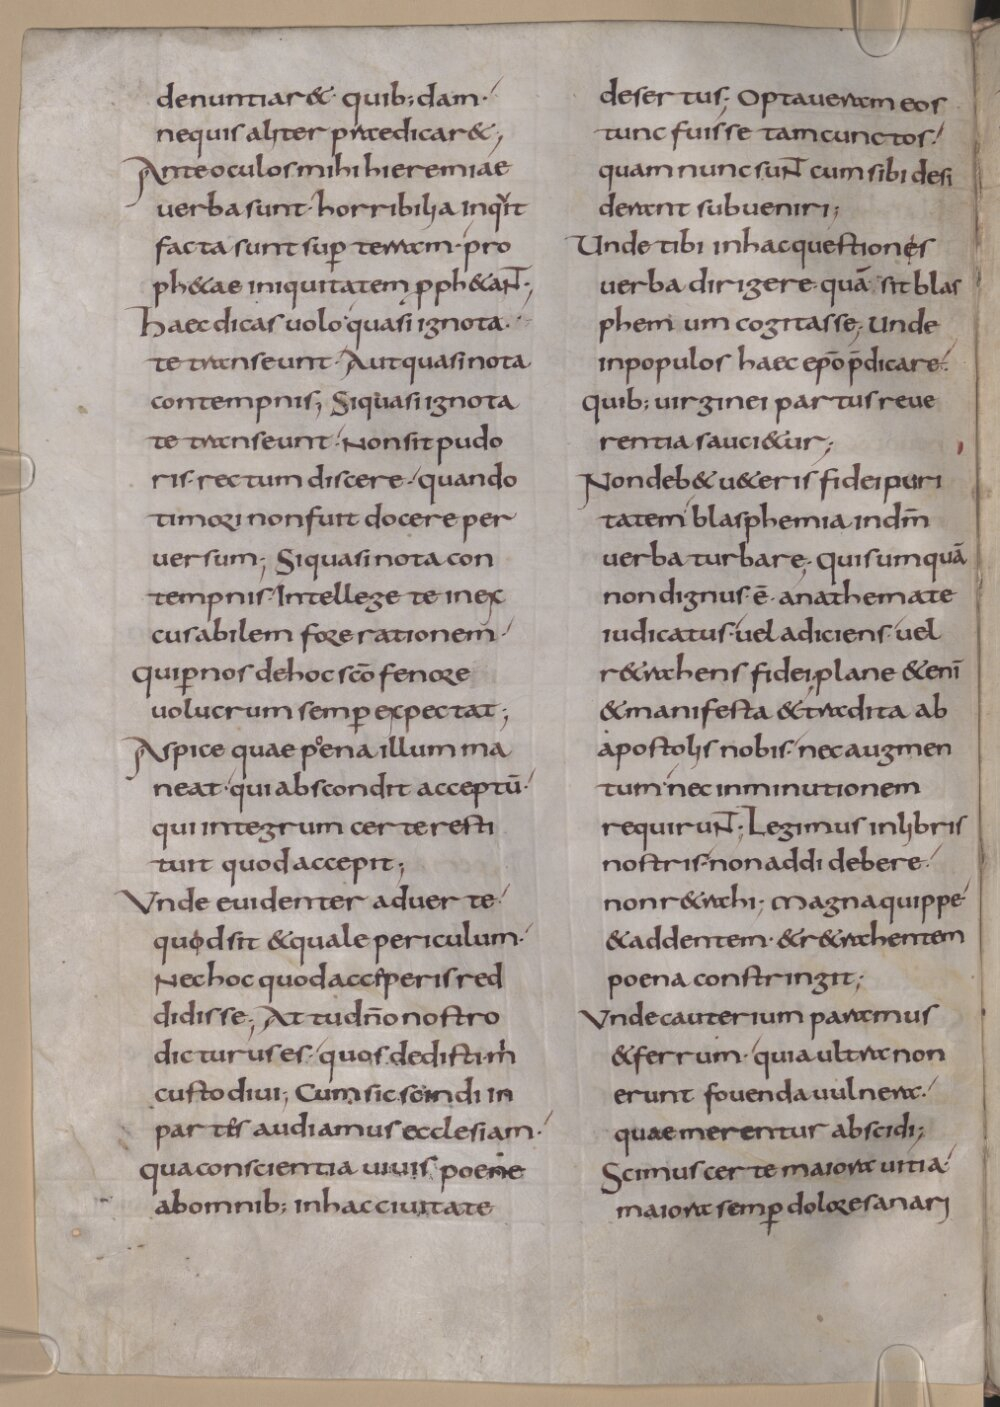 denuntiar&· quib;dam·
nequis aliter praedicar&;
Ante oculos mihi hieremiae
uerba sunt· horribilia inqt
facta sunt sup̱ terram· pro
ph&ae iniquitatem ꝓph&aNT·;
haec dicas uolo· quasi ignota·
te transeunt· Aut quasi nota
contempnis; Si quasi ignota
te transeunt· Non sit pudo
ris· rectum discere· quando
timori non fuit docere per
uersum; Si quasi nota con
tempnis· Intellege te inex
cusabilem fore rationem·
quip̱ nos de hoc sc̄o fenore
uolucrum semp̱ expectat;
Aspice quae poena illum ma
neat· qui abscondit acceptū·
qui integrum certe resti
tuit quod accepit;
Vnde euidenter aduerte
quod sit & quale periculum·
Nec hoc quod acceperis red
didisse; At tu dn̄o nostro
dicturus es· quos dedisti m
custodiui; Cum sic scindi in
partes audiamus ecclesiam·
qua conscientia uiuis poene
ab omnib; in hac ciuitate
desertus; Optaueram eos
tunc fuisse tam cunctos·
quam nunc suNT cum sibi desi
derant subueniri;
Unde tibi in hac questiones
uerba dirigere· quā sit blas
phemum cogitasse; Unde
in populos haec ep̄o p̄dicare·
quib; uirginei partus reue
rentia sauci&ur;
Non deb& u&eris fidei puri
tatem blasphemia in dm̄
uerba turbare; Quis umquā
non dignus· ē· anathemate
iudicatus· uel adiciens· uel
r&rahens fidei; plane &enī
& manifesta & tradita ab
apostolis nobis· nec augmen
tum nec inminutionem
requiruNT; Legimus in libris
nostris· non addi debere·
non r&rahi; Magna quippe
& addentem· & r&rahentem
poena constringit;
Vnde cauterium paramus
& ferrum· quia ultra non
erunt fouenda uulnera·
quae merentur abscidi;
Scimus certe maiora uitia
maiora semp̱ dolore sanari